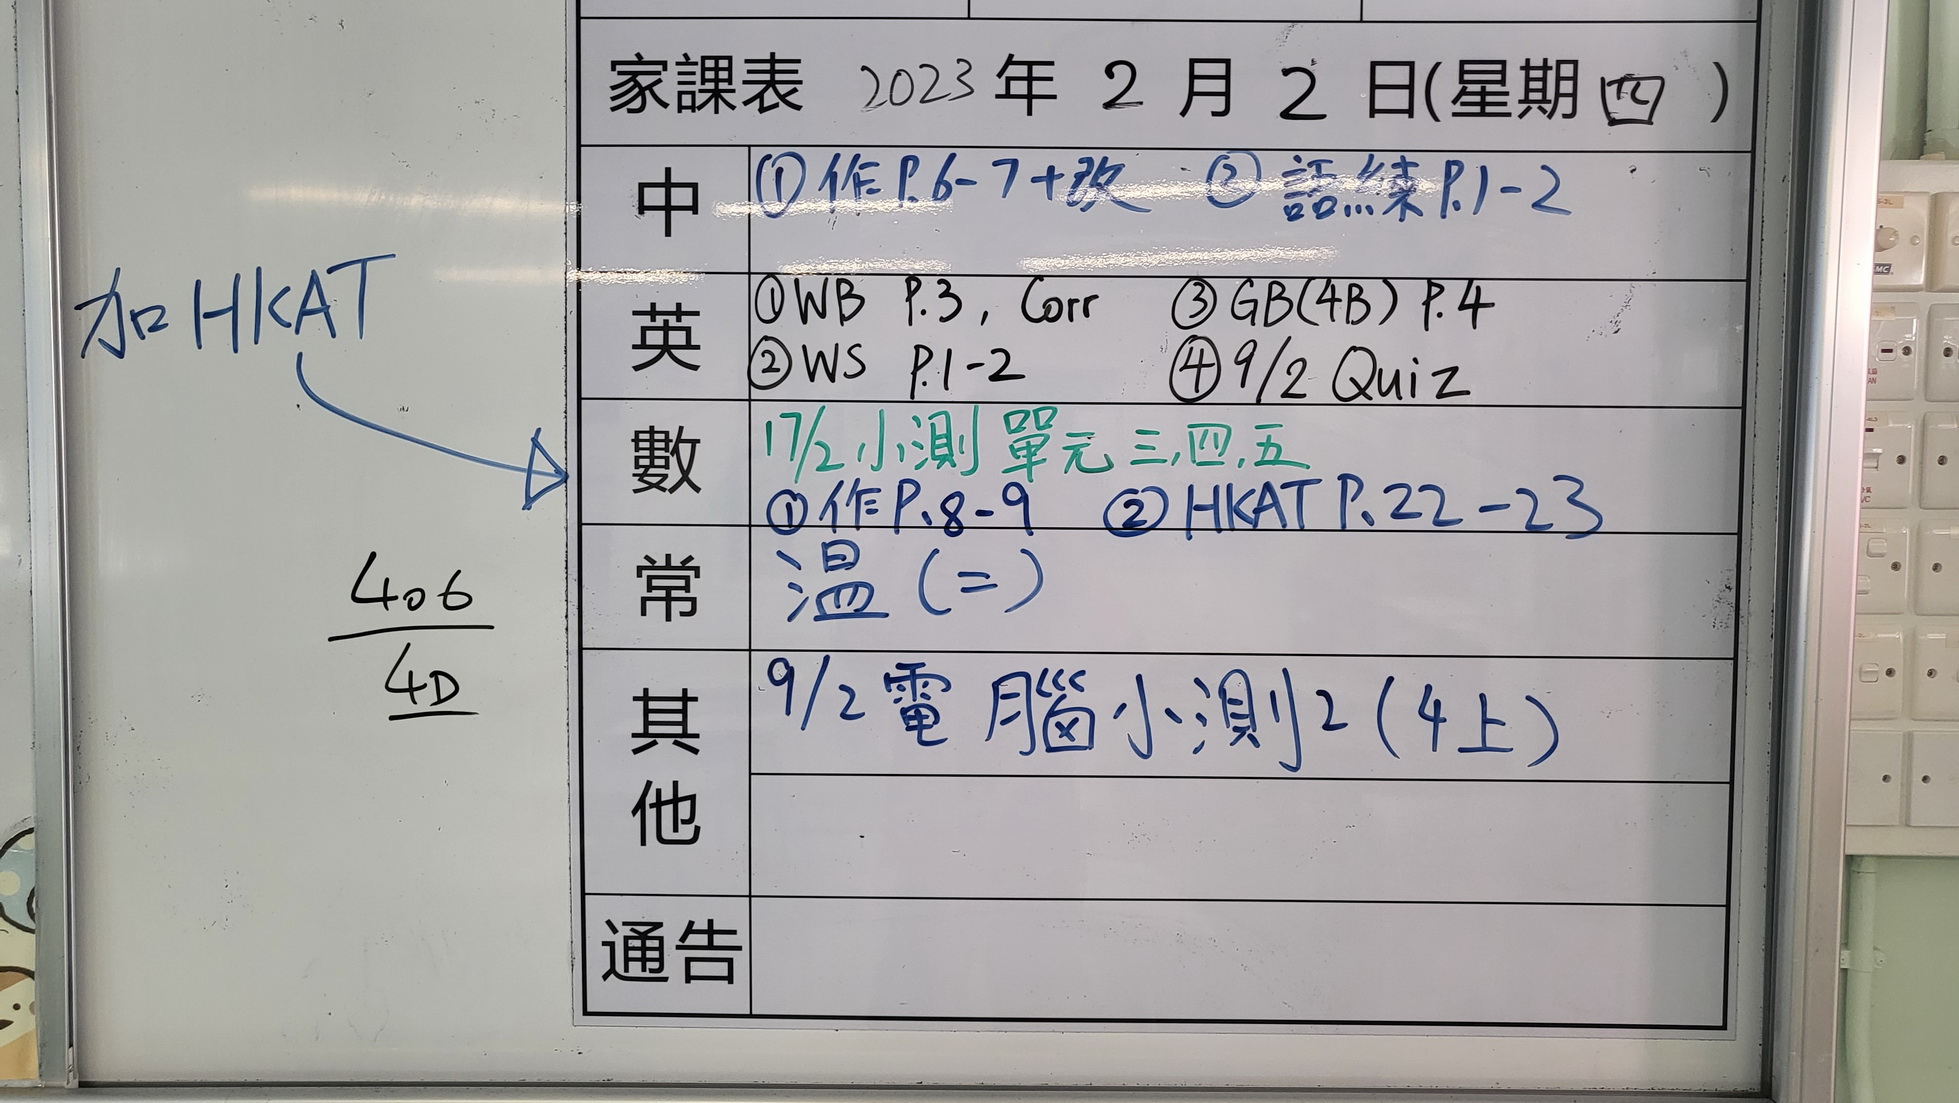 家課表 2023 年 2 月 2 日(星期四)
中 ①作P.6-7+改 ② 語練P.1-2
英 ①WB P.3, Corr ③GB(4B) P.4
②WS P.1-2 ④9/2 Quiz
加HKAT
數 17/2小測 單元三,四,五
①作P.8-9 ②HKAT P.22-23
常 溫(二)
406
4D
其他 9/2 電腦小測2(4上)
通告